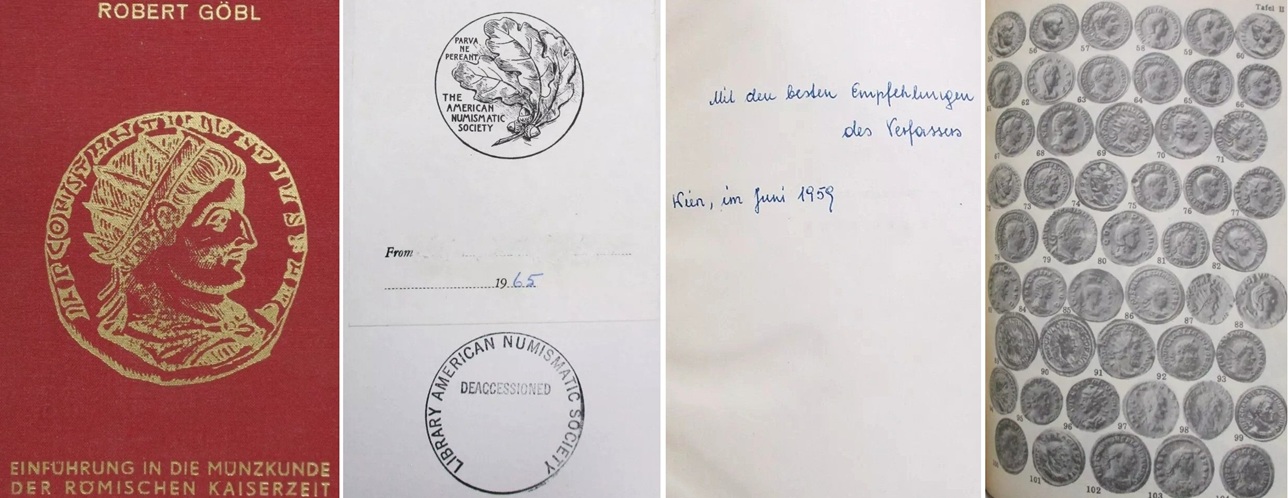 ROBERT GÖBL
IMP CONSTANTINUS PIUS F AVG
EINFÜHRUNG IN DIE MÜNZKUNDE
DER RÖMISCHEN KAISERZEIT
PARVA
NE
PEREANT
THE
AMERICAN
NUMISMATIC
SOCIETY
From
19 65
LIBRARY AMERICAN NUMISMATIC SOCIETY
DEACCESSIONED
Mit den besten Empfehlungen
des Verfassers
Wien, im Juni 1959
Tafel II
56 57 58 59 60
62 63 64 65 66
67 68 69 70 71
73 74 75 76 77
79 80 81 82
84 85 86 87 88
90 91 92 93
95 96 97 98 99
101 102 103 104